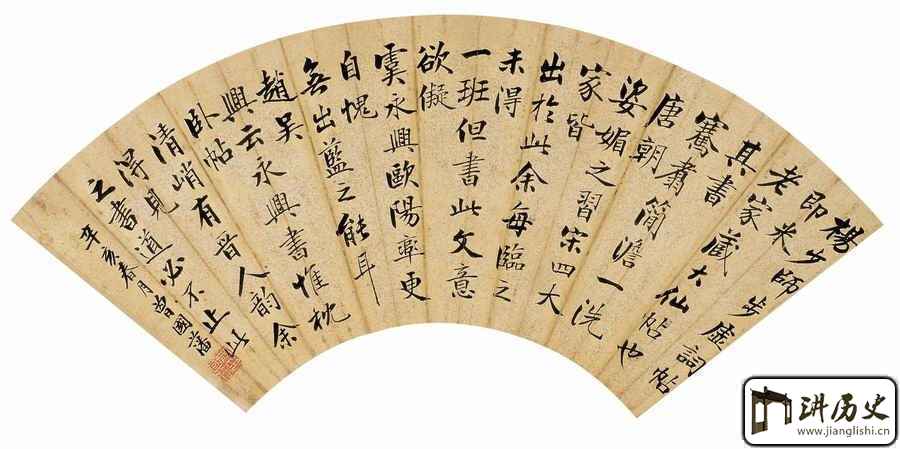 楊少師步虛詞帖
即米
老家藏大仙帖也
其書
騫翥簡澹一洗
唐朝
姿媚之習宋四大
家皆
出於此余每臨之
未得
一班但書此文意
欲儗
虞永興歐陽率更
自愧
無出藍之能耳
趙吳
興云永興書惟枕
臥帖
清峭有晉人韻余
得見道必不止此
之書
辛亥春月曾國藩
讲历史
www.jianglishi.cn